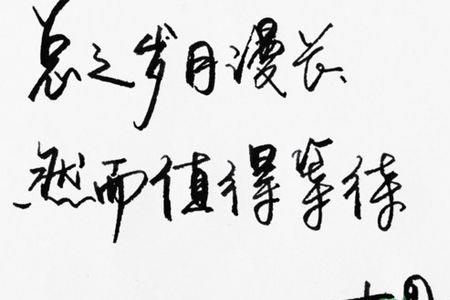 总之岁月漫长
然而值得等待